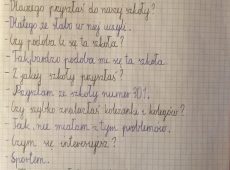 - Dlaczego przyszłaś do naszej szkoły?
- Dlatego, że słabo w niej uczyli.
- Czy podoba Ci się ta szkoła?
- Tak, bardzo podoba mi się ta szkoła.
- Z jakiej szkoły przyszłaś?
- Przyszłam ze szkoły numer 30.
- Czy szybko znalazłaś koleżanki i kolegów?
- Tak, nie miałam z tym problemów.
- Czym się interesujesz?
- Sportem.